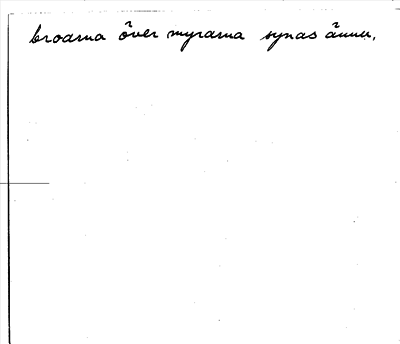 broarna över myrarna synas ännu.